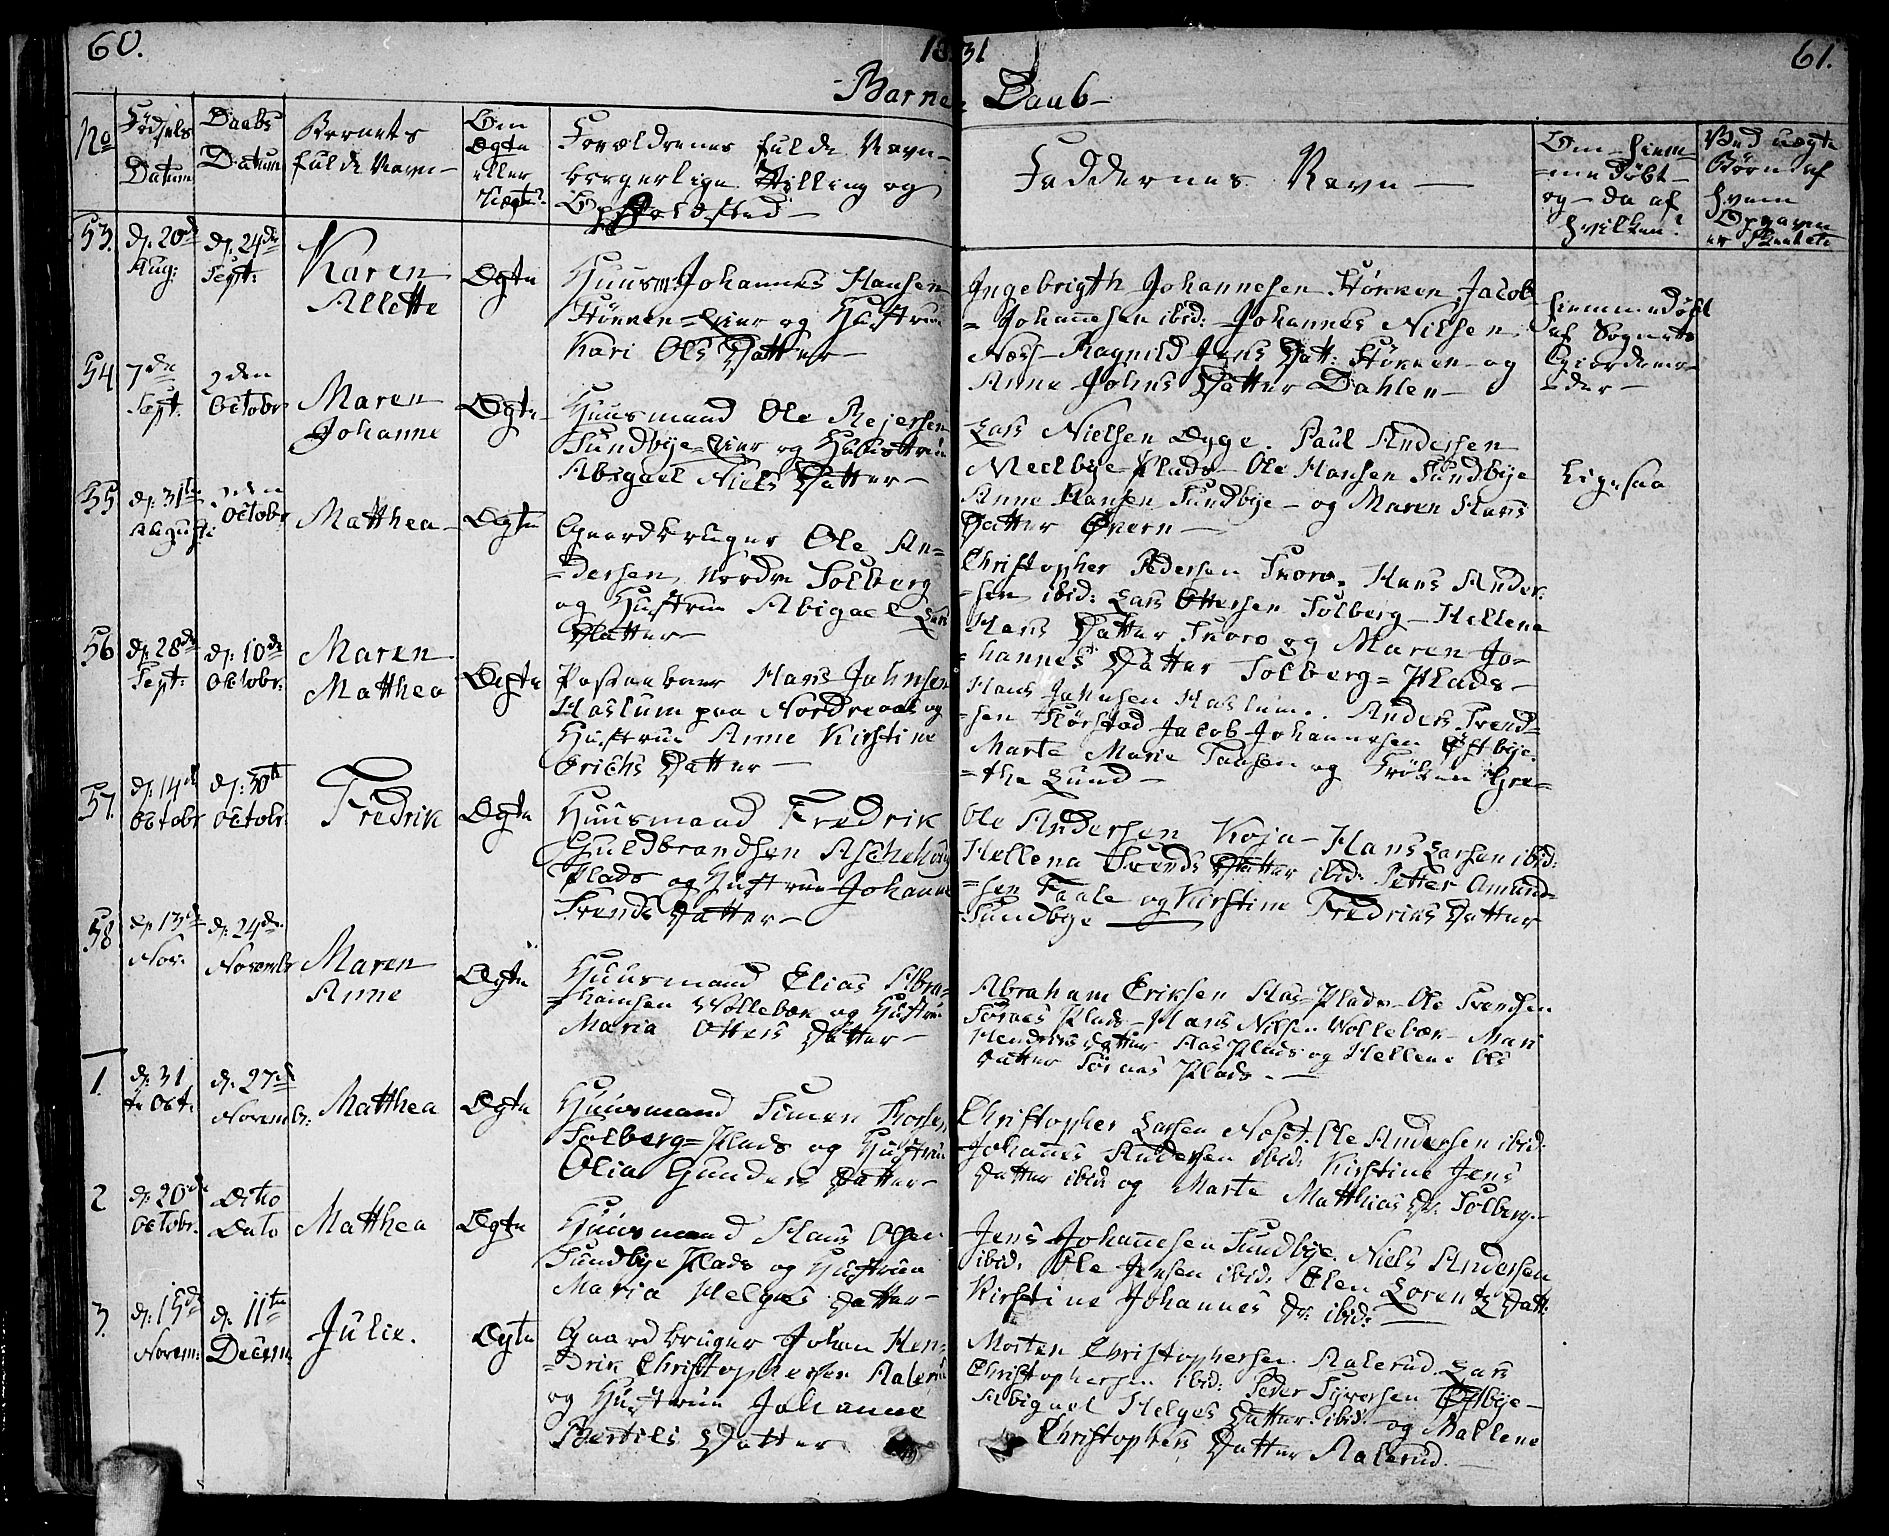 60.
1831
61.
Barne Daab
No
Fødsels
Datum
Daabs
Datum
Barnets
fulde Navn
Om
Ægte
eller
Uægte?
Forældrenes fulde Navn
borgerlige Stilling og
Opholdsted
Faddernes Navn
Om hiem-
-me døbt
og da af
hvilken?
Ved uægte
Børn af
hvem
Opgaven
er skeet
53.
d. 20de
Aug:
d. 24de
Sept:
Karen
Allette
Ægte
Huusm. Johannes Hansen
Støkken-Eier og Hustrue
Kari Ols Datter
Ingebrigth Johannesen Støkken, Jacob
Johannesen ibid: Johannes Nilsen
Næss Ragnild Jens Datt: Støkken og
Anne Johns Datter Dahlen
hiemmedøbt
af Sognets
Giordemo-
der
54
7de
Sept.
2den
Octobr
Maren
Johanne
Ægte
Huusmand Ole Rejersen
Sundbye-Eier og Hustrue
Abigael Niels Datter
Lars Nielsen Dyge. Paul Andersen
Melbye-Plads Ole Hansen Sundbye
Anne Hansen Sundbye og Maren Hans
Datter Øvern
Ligesaa
55
d. 31te
Augusti
2den
Octobr
Matthea
Ægte
Gaardbruger Ole An-
-dersen, Nordre Solberg
og Hustrue Abigael Lars
Datter
Christopher Pedersen Snoro. Hans Ander-
-sen ibid: Lars Ottersen Solberg Hellene
Hans Datter Snoro og Maren Jo-
-hannes Datter Solberg-Plads
56
d. 28de
Sept:
d. 10de
Octobr.
Maren
Matthea
Ægte
Hans Johnsen
Haslum paa Nordre og
Hustrue Anne Kirstine
Erichs Datter
Hans Johnsen Haslum. Anders Svend-
-sen Jacob Johannesen Østbye.
Marte Marie Hansen og Frøken Gre-
-the Lund
57.
d. 14de
Octobr
d. 30te
Octobr.
Fredrik
Ægte
Huusmand Fredrik
Guldbrandsen Aschehoug
Plads og Hustrue Johanne
Svends Datter
Ole Andersen Koja Hans Larsen ibid:
Hellena Svends Datter ibid: Petter Amund-
-sen Faale og Kirstine Fredriks Datter
Sundbye
58
d. 13de
Nov:
d. 24de
Novembr
Maren
Anne
Ægte
Huusmand Elias Abra-
-hamsen Wollebæk og Hustrue
Maria Otters Datter
Abraham Eriksen Aas-Plads Ole Svendsen
Plads Hans Nilsen Wollebæk Mari
Hendriks Datter Aas Plads og Hellene Ols
Datter Plads.
1.
d. 31
te Oct.
d. 27de
Novembr:
Matthea
Ægte
Huusmand Simen Thorsen
Solberg-Plads og Hustrue
Olia Gunders Datter
Christopher Larsen Næset. Ole Andersen ibid:
Johannes Andersen ibid: Kirstine Jens
Datter ibid: og Marte Matthias Dr. Solberg.
2
d. 20de
Octobr.
Ditto
Dato
Matthea
Ægte
Huusmand Hans Olsen
Sundbye Plads og Hustrue
Maria Helges Datter
Jens Johannesen Sundbye. Niels Andersen
ibid. Ole Jensen ibid: Elen Lorentz Datt:
Kirstine Johannes Dr: ibid:
3.
d. 15de
Novem:
d. 11te
Decem.
Julie.
Ægte
Gaardbruger Johan Hen-
-drik Christophersen Aalerud
og Hustrue Johanne
Bertils Datter
Morten Christophersen Aalerud Lars
Christophersen ibid: Peder Syversen Østbye
Abigael Helges Datter ibid. og Mallene
Christophers Datter Aalerud.